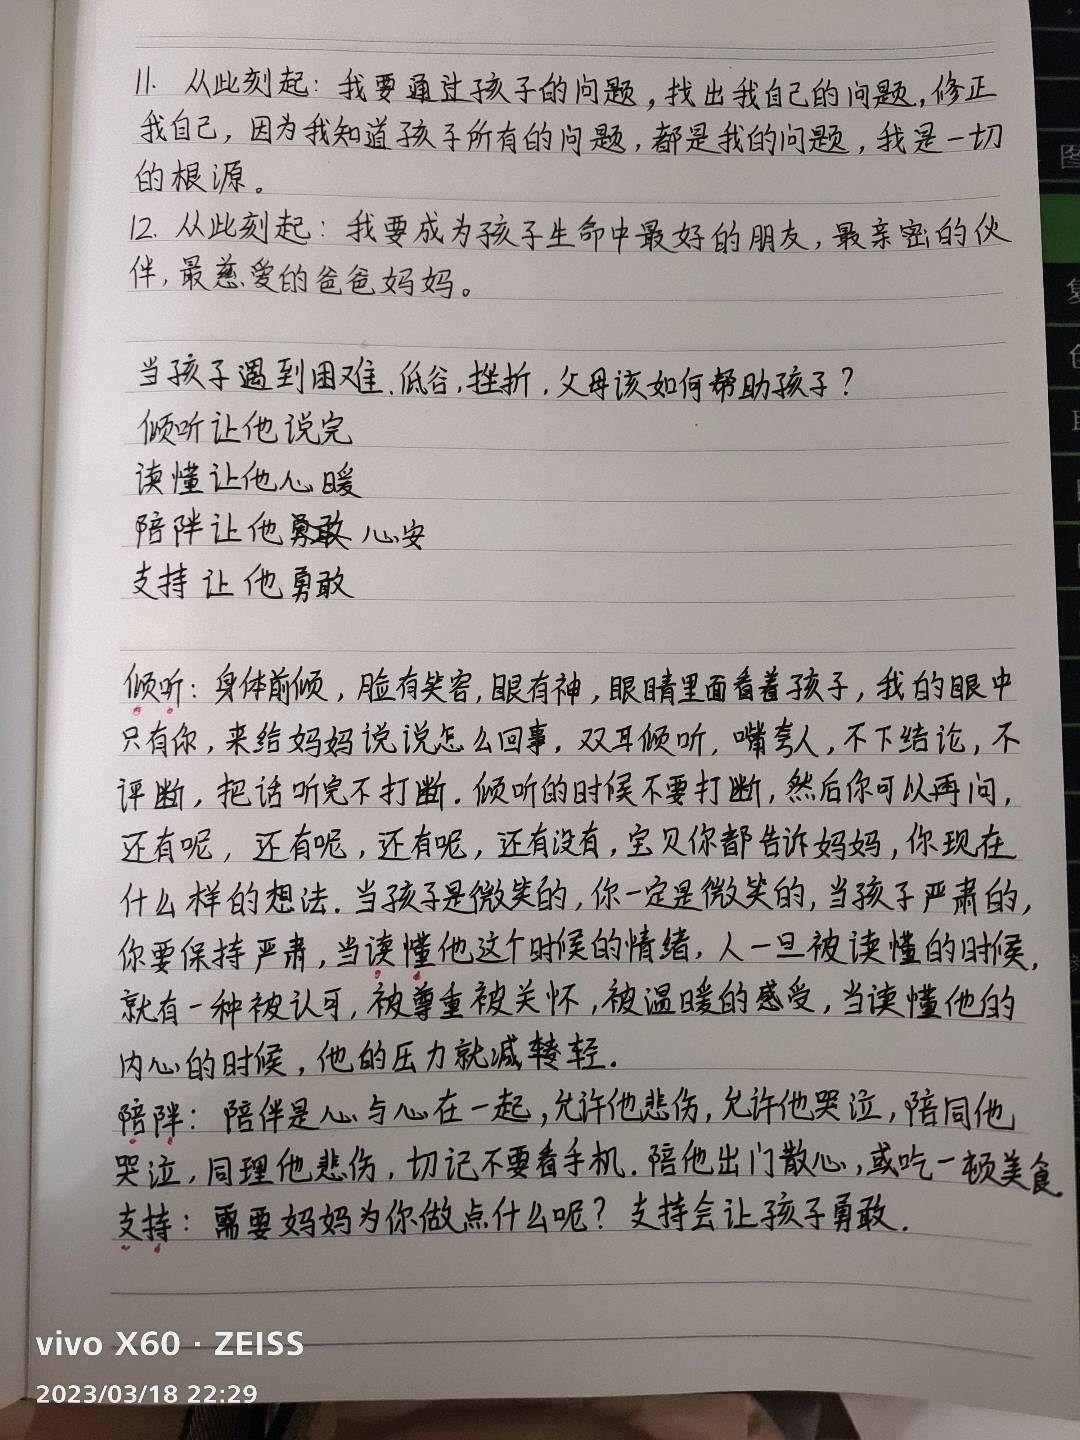 11. 从此刻起：我要通过孩子的问题，找出我自己的问题，修正
我自己，因为我知道孩子所有的问题，都是我的问题，我是一切
的根源。
12. 从此刻起：我要成为孩子生命中最好的朋友，最亲密的伙
伴，最慈爱的爸爸妈妈。
当孩子遇到困难、低谷，挫折，父母该如何帮助孩子？
倾听让他说完
读懂让他心暖
陪伴让他心安
支持让他勇敢
倾听：身体前倾，脸有笑容，眼有神，眼睛里面看着孩子，我的眼中
只有你，来给妈妈说说怎么回事，双耳倾听，嘴夸人，不下结论，不
评断，把话听完不打断．倾听的时候不要打断，然后你可以再问，
还有呢，还有呢，还有呢，还有没有，宝贝你都告诉妈妈，你现在
什么样的想法．当孩子是微笑的，你一定是微笑的，当孩子严肃的，
你要保持严肃，当读懂他这个时候的情绪，人一旦被读懂的时候，
就有一种被认可，被尊重被关怀，被温暖的感受，当读懂他的
内心的时候，他的压力就减轻．
陪伴：陪伴是心与心在一起，允许他悲伤，允许他哭泣，陪同他
哭泣，同理他悲伤，切记不要看手机．陪他出门散心，或吃一顿美食
支持：需要妈妈为你做点什么呢？支持会让孩子勇敢．
图
vivo X60 · ZEISS
2023/03/18 22:29